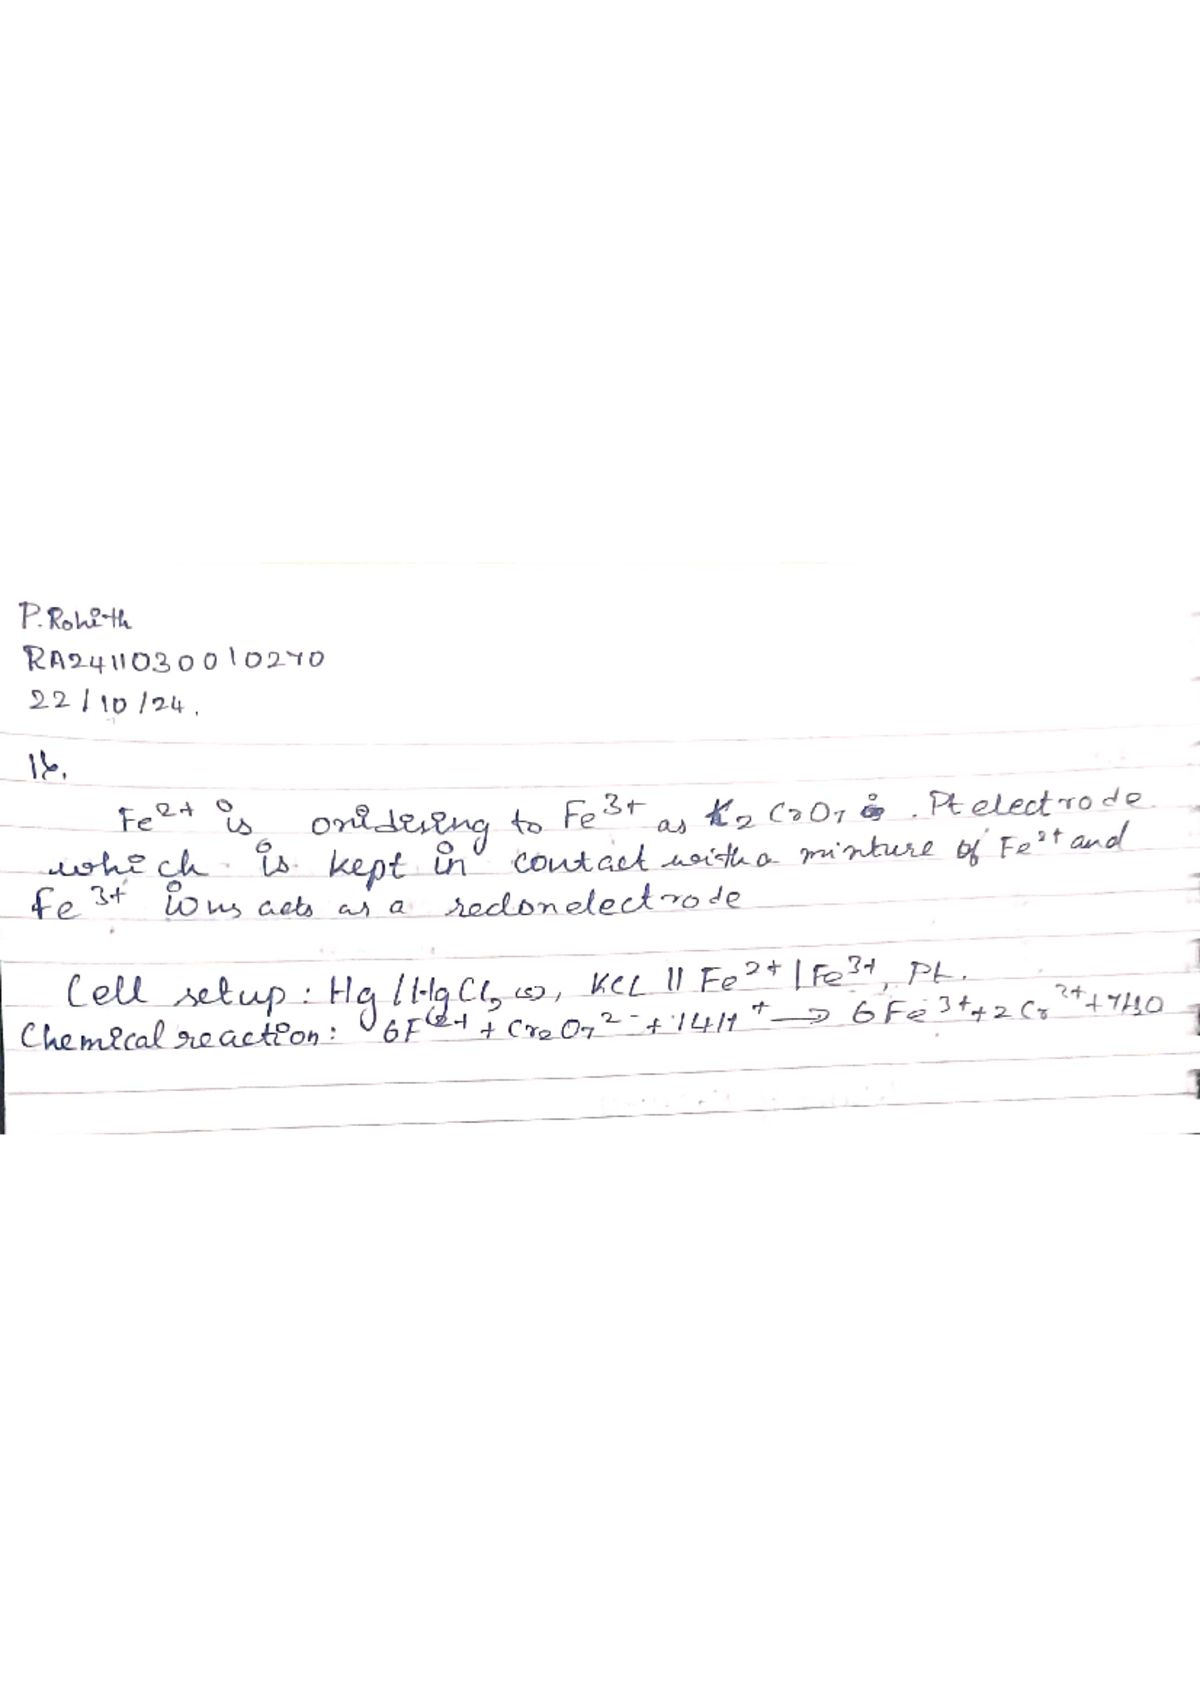 P. Rohith
RA2411030010270
22/10/24.
16.
Fe2+ is oxidising to Fe3+ as K2Cr2O7 is . Pt electrode
which is kept in contact with a mixture of Fe2+ and
Fe3+ ions acts as a redox electrode
Cell setup : Hg / HgCl2 (s), KCL || Fe2+ | Fe3+, Pt.
Chemical reaction : 6Fe2+ + Cr2O7 2- + 14H+ → 6Fe3+ + 2Cr3+ + 7H2O